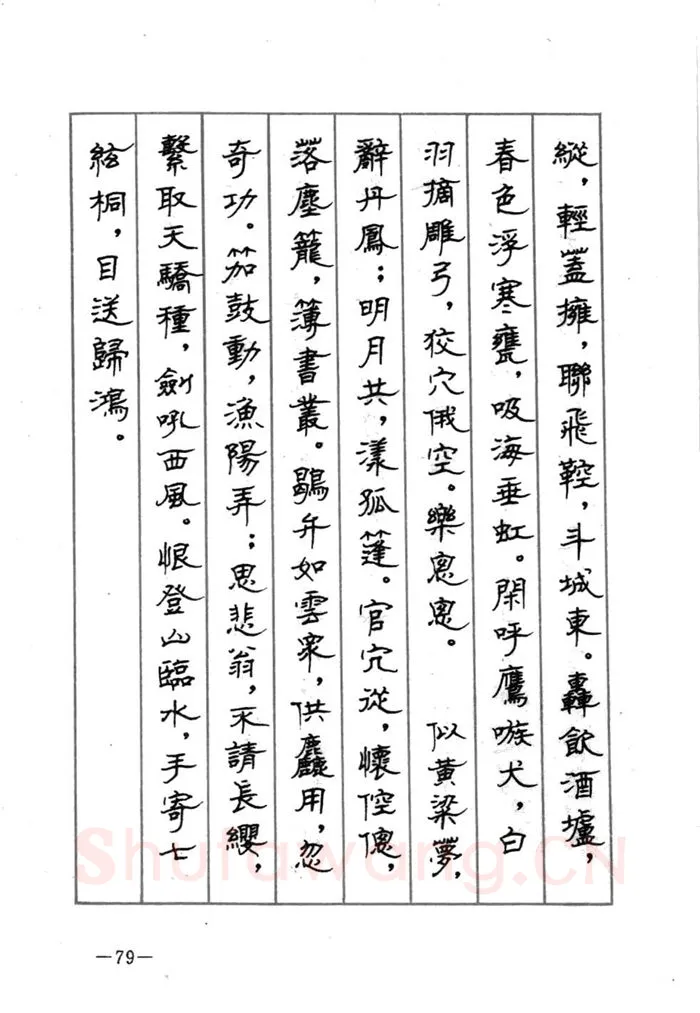 縱，輕蓋擁，聯飛鞚，斗城東。轟飲酒壚，
春色浮寒甕，吸海垂虹。閑呼鷹嗾犬，白
羽摘雕弓，狡穴俄空。樂悤悤。　似黃粱夢，
辭丹鳳；明月共，漾孤篷。官宂從，懷倥傯，
落塵籠，簿書叢。鶡弁如雲眾，供麤用，忽
奇功。笳鼓動，漁陽弄；思悲翁，不請長纓，
繫取天驕種，劍吼西風。恨登山臨水，手寄七
絃桐，目送歸鴻。
Shufawang.CN
—79—